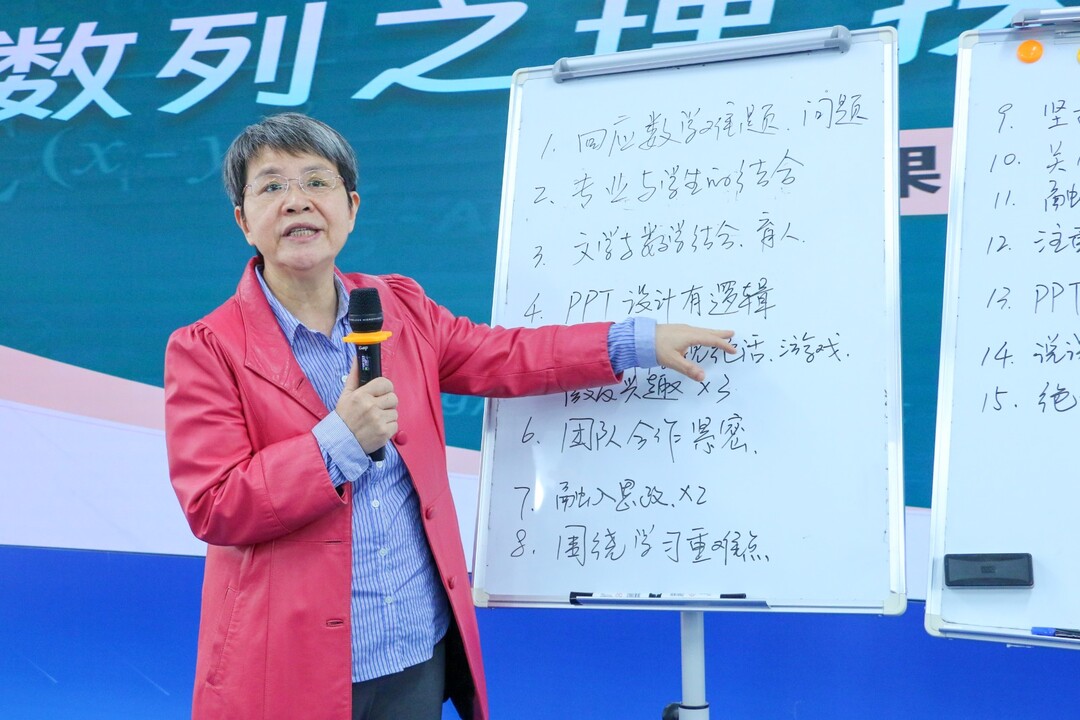 数列之理
(x_i - y
果
1. 回应数学难题、问题
2. 专业与学生的结合
3. 文学与数学结合、育人
4. PPT设计有逻辑
游戏.
兴趣 ×3
6. 团队合作紧密.
7. 融入思政.×2
8. 围绕学习重难点.
9. 坚
10. 关
11. 融
12. 注重
13. PPT
14. 说课
15. 绝